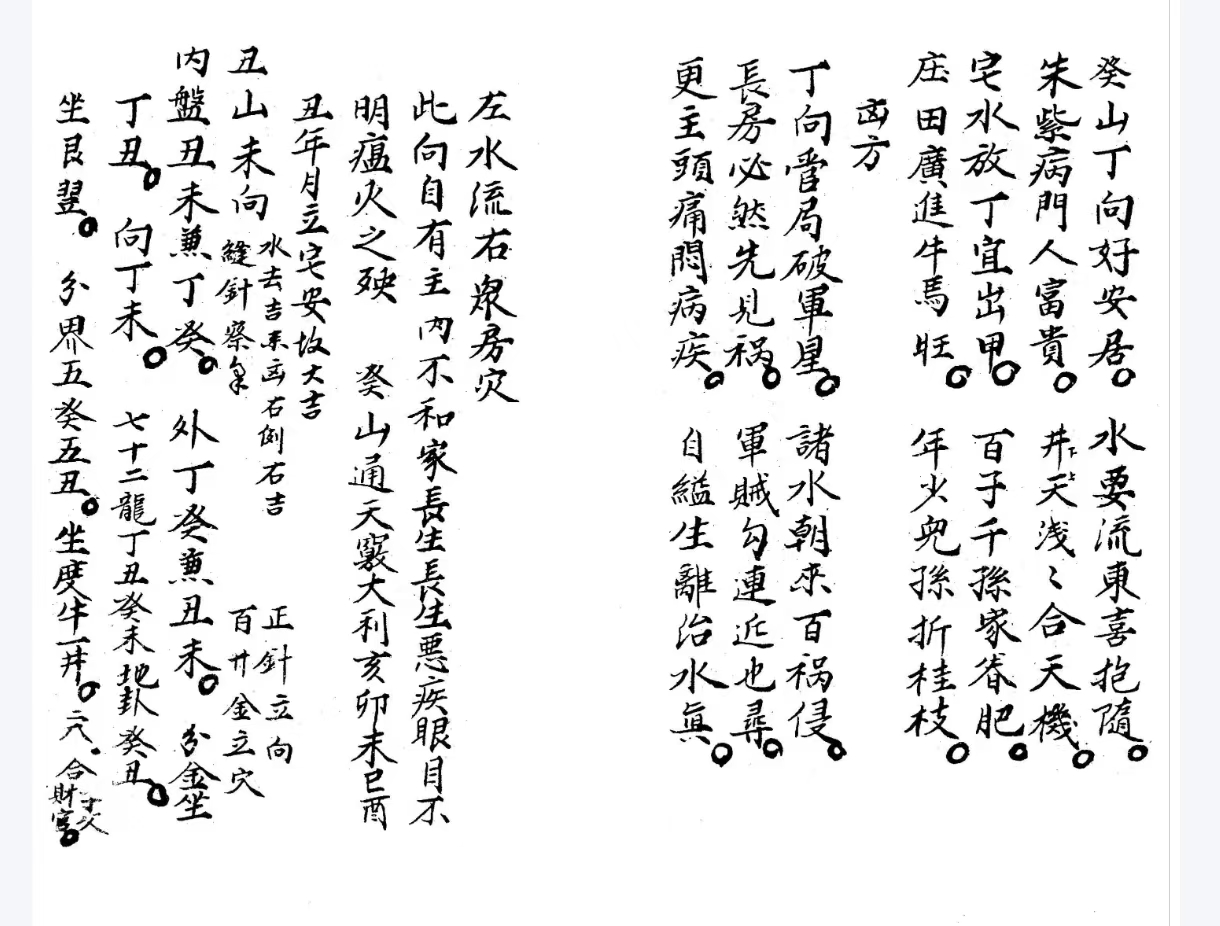 癸山丁向好安居。水要流東喜抱隨。
朱紫病門人富貴。井天浅〻合天機。
宅水放丁宜出甲。百子千孫家眷肥。
庄田廣進牛馬旺。年少兒孫折桂枝。
凶方
丁向當局破軍星。諸水朝來百祸侵。
長房必然先見祸。軍賊勾連近也尋。
更主頭痛悶病疾。自縊生離治水眞。
左水流右衆房灾
此向自有主内不和家長生長生悪疾眼目不
明瘟火之殃 癸山通天竅大利亥卯未巳酉
丑年月立宅安坟大吉
丑山未向 水去吉来凶右倒右吉 正針立向
縫針察氣 百廿金立穴
内盤丑未兼丁癸。外丁癸兼丑未。分金坐
丁丑。向丁未。七十二龍丁丑癸未地卦癸丑。
坐艮翌。分界五癸五丑。坐度牛一井。六。合財官。